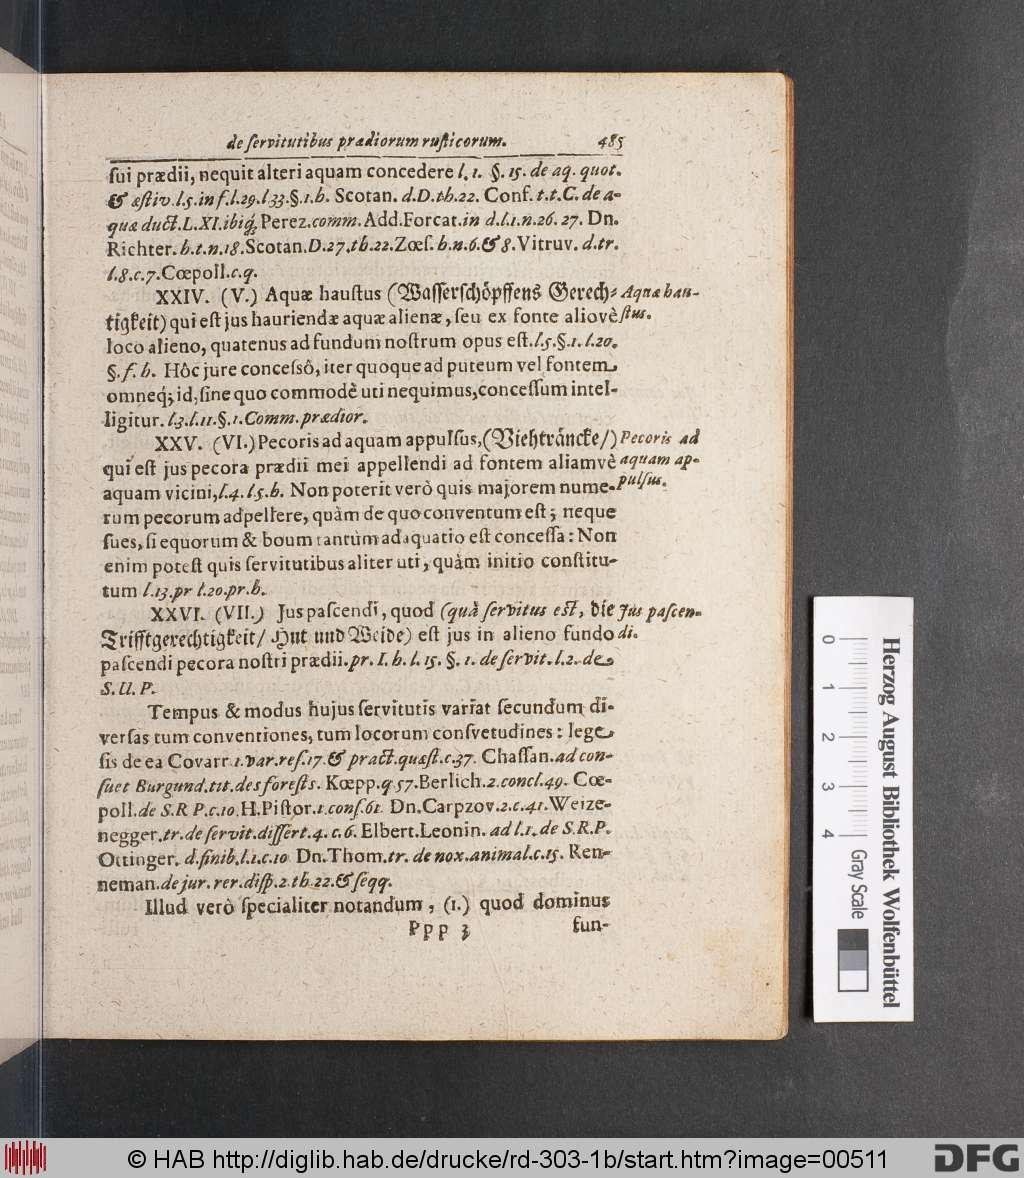 de ſervitutibus prædiorum ruſticorum. 485
ſui prædii, nequit alteri aquam concedere l. 1. §. 15. de aq. quot.
& æſtiv. l. 5. in f. l. 29. l 33. §. 1. h. Scotan. d. D. th. 22. Conf. t. t. C. de a-
quæ duct. L. XI. ibiq; Perez. comm. Add. Forcat. in d. l. 1. n. 26. 27. Dn.
Richter. h. t. n. 18. Scotan. D. 27. th. 22. Zœſ. h. n. 6. & 8. Vitruv. d. tr.
l. 8. c. 7. Cœpoll. c. q.
XXIV. (V.) Aquæ hauſtus (Waſſerſchöpffens Gerech- Aquæ hau-
tigkeit) qui eſt jus hauriendæ aquæ alienæ, ſeu ex fonte aliovè ſtus.
loco alieno, quatenus ad fundum noſtrum opus eſt. l. 5. §. 1. l. 20.
§. f. h. Hôc jure conceſsô, iter quoque ad puteum vel fontem
omneq; id, ſine quo commodè uti nequimus, conceſſum intel-
ligitur. l. 3. l. 11. §. 1. Comm. prædior.
XXV. (VI.) Pecoris ad aquam appulſus, (Viehträncke/) Pecoris ad
qui eſt jus pecora prædii mei appellendi ad fontem aliamvè aquam ap-
aquam vicini, l. 4. l 5. h. Non poterit verò quis majorem nume- pulſus.
rum pecorum adpellere, quàm de quo conventum eſt; neque
ſues, ſi equorum & boum tantùm adaquatio eſt conceſſa: Non
enim poteſt quis ſervitutibus aliter uti, quàm initio conſtitu-
tum l. 13. pr l. 20. pr. h.
XXVI. (VII.) Jus paſcendi, quod (quà ſervitus eſt, die Jus paſcen-
Trifftgerechtigkeit/ Hut und Weide) eſt jus in alieno fundo di.
paſcendi pecora noſtri prædii. pr. I. h. l. 15. §. 1. de ſervit. l. 2. de
S. U. P.
Tempus & modus hujus ſervitutis variat ſecundum di-
verſas tum conventiones, tum locorum conſvetudines: lege
ſis de ea Covarr 1. var. reſ. 17. & pract. quæſt. c. 37. Chaſſan. ad con-
ſuet Burgund. tit. des foreſts. Kœpp. q 57. Berlich. 2. concl. 49. Cœ-
poll. de S. R P. c. 10. H. Piſtor. 1. conſ. 61. Dn. Carpzov. 2. c. 41. Weize-
negger. tr. de ſervit. diſſert. 4. c. 6. Elbert. Leonin. ad l. 1. de S. R. P.
Ottinger. d. finib. l. 1. c. 10 Dn. Thom. tr. de nox. animal. c. 15. Ren-
neman. de jur. rer. diſp. 2 th. 22. & ſeqq.
Illud verò ſpecialiter notandum, (1.) quod dominus
Ppp 3 fun-
0 1 2 3 4 Gray Scale
Herzog August Bibliothek Wolfenbüttel
© HAB http://diglib.hab.de/drucke/rd-303-1b/start.htm?image=00511 DFG